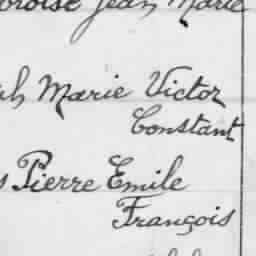 Jean Marie
Marie Victor
Constant
Pierre Emile
François